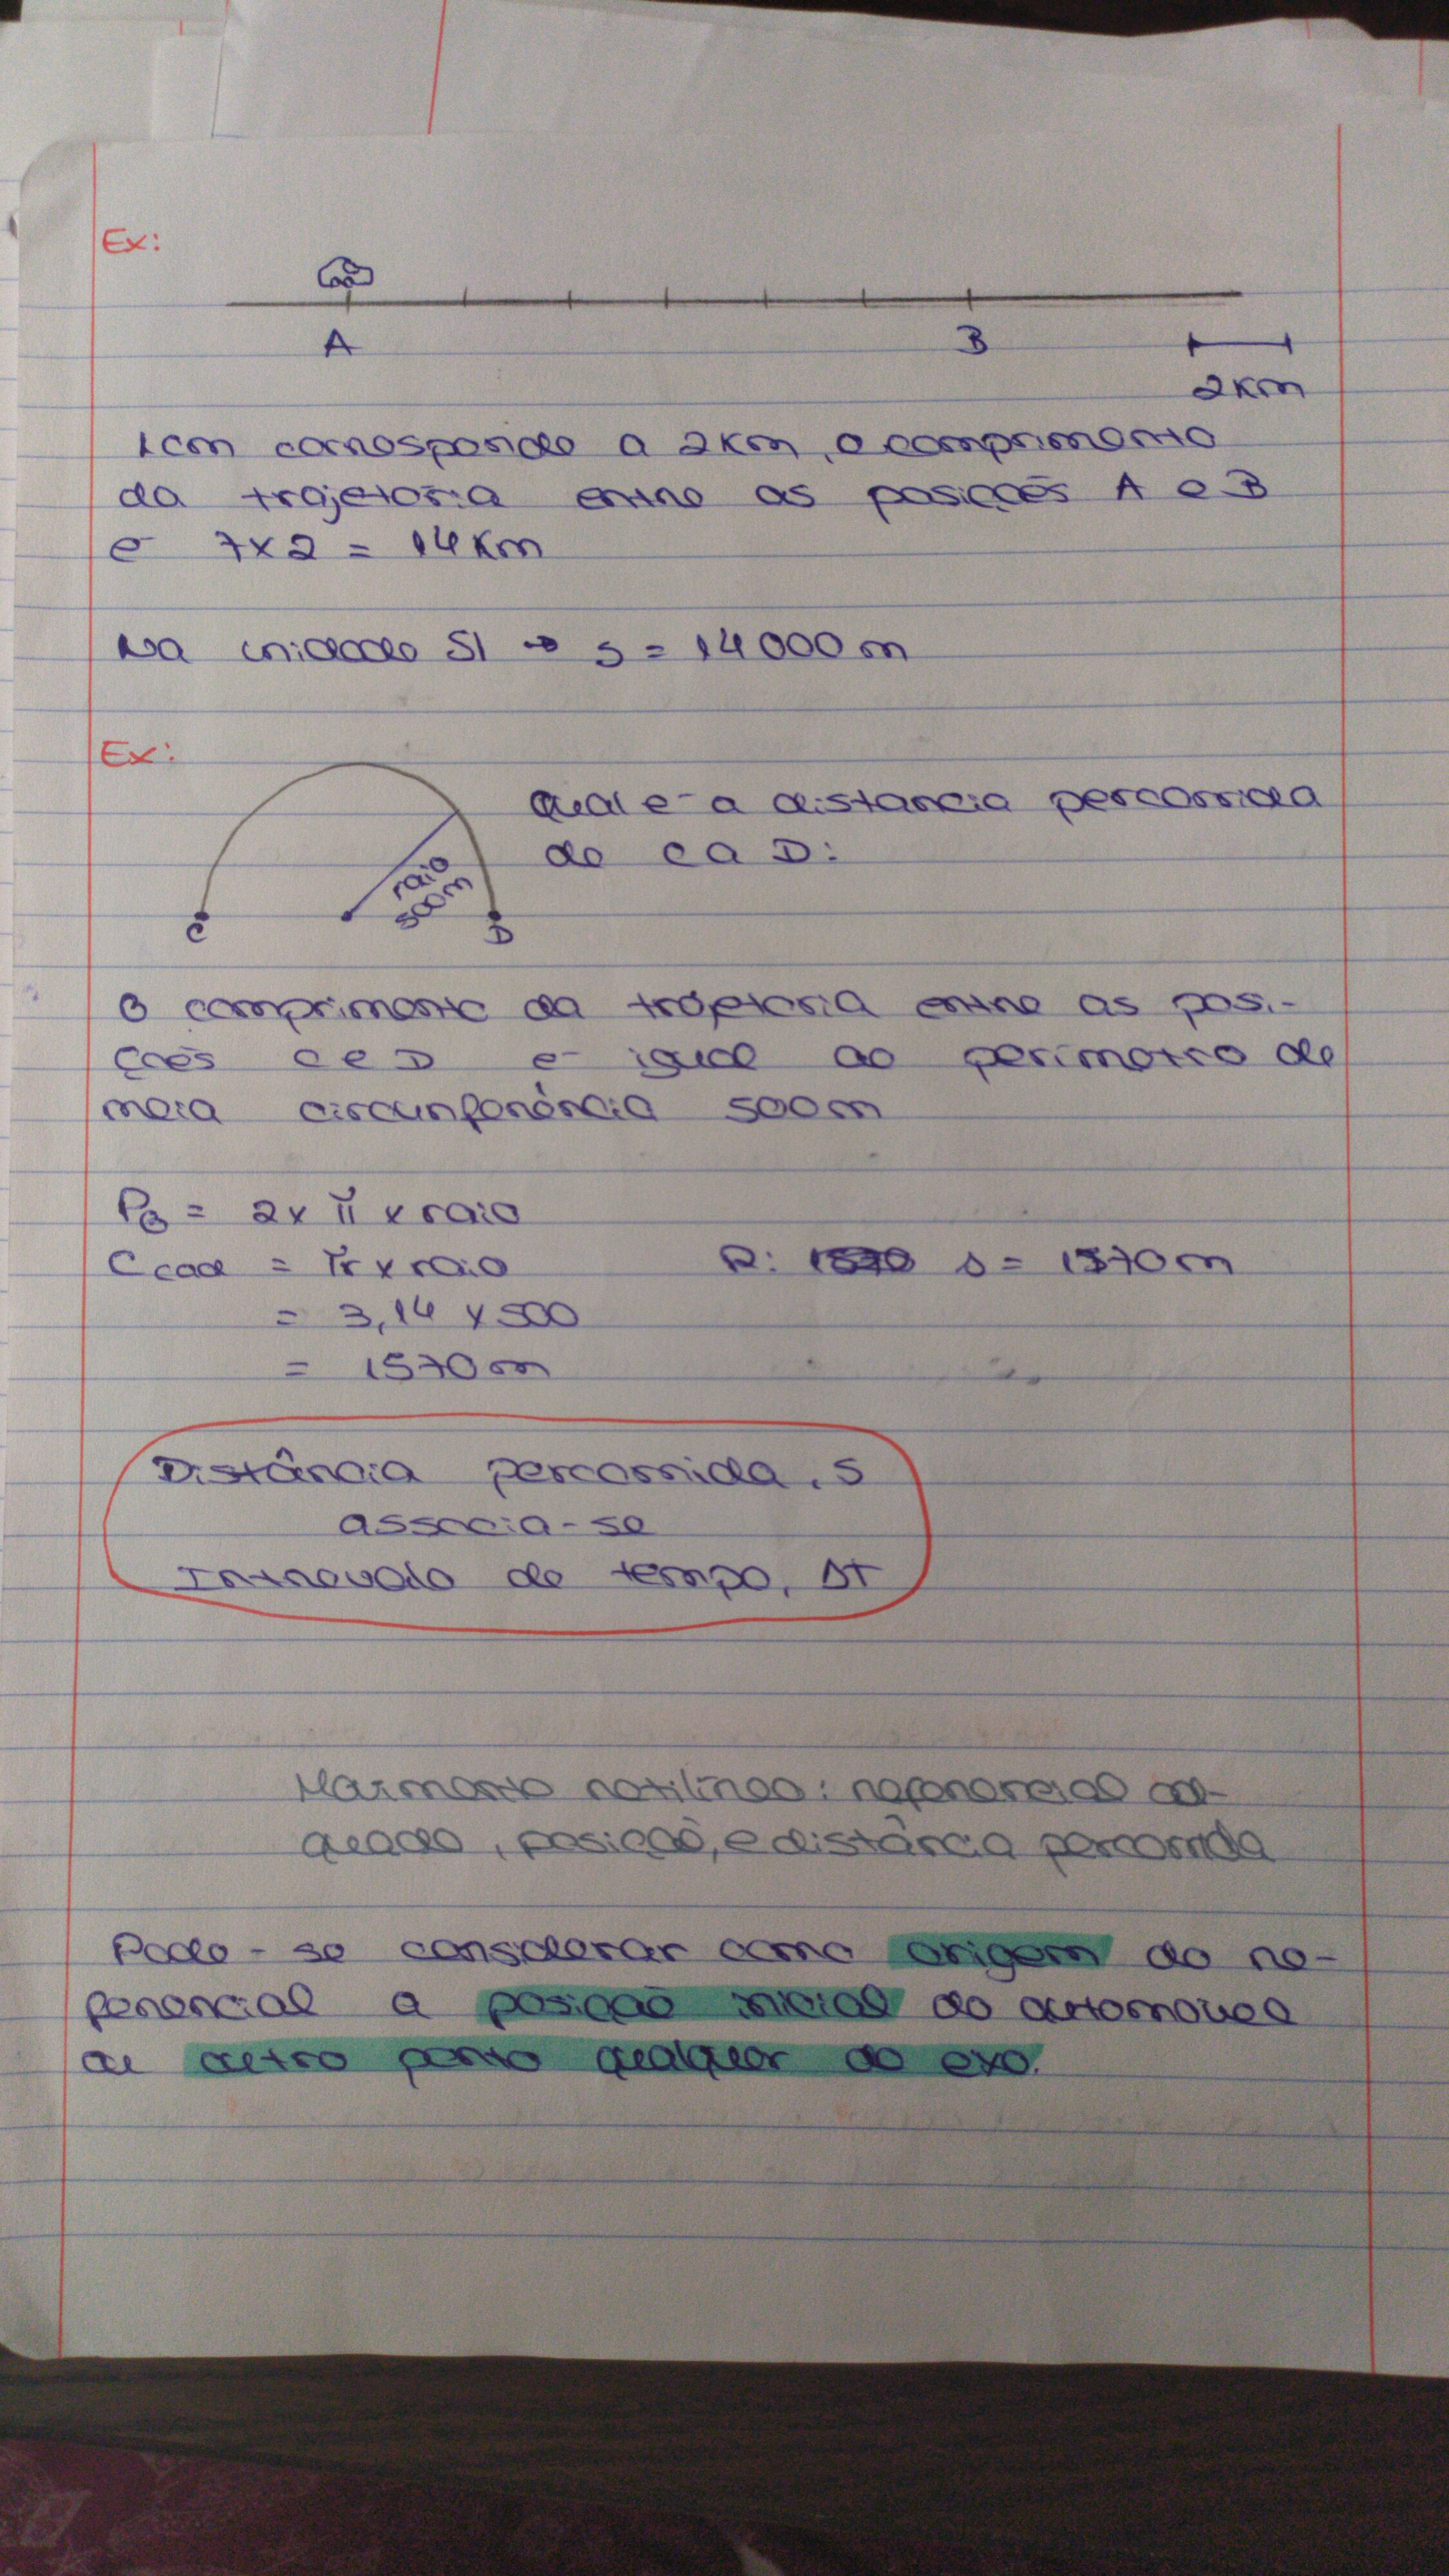 Ex:
A B
2 Km
1cm corresponde a 2 Km, o comprimento
da trajetoria entre as posições A e B
é 7x2 = 14 Km
Na unidade SI → s = 14 000 m
Ex:
Qual é a distancia percorrida
de C a D:
raio
500m
C D
O comprimento da trajetoria entre as posi-
ções C e D é igual ao perimetro de
meia circunferência 500m
P⊙ = 2 x π x raio
C cad = π x raio R: s = 1570 m
= 3,14 x 500
= 1570 m
Distância percorrida, s
associa-se
Intrevalo de tempo, Δt
retilíneo: referencial
posição, e distância percorrida
Pode-se considerar como origem do re-
ferencial a posição inicial do automovel
ou outro ponto qualquer do eixo.